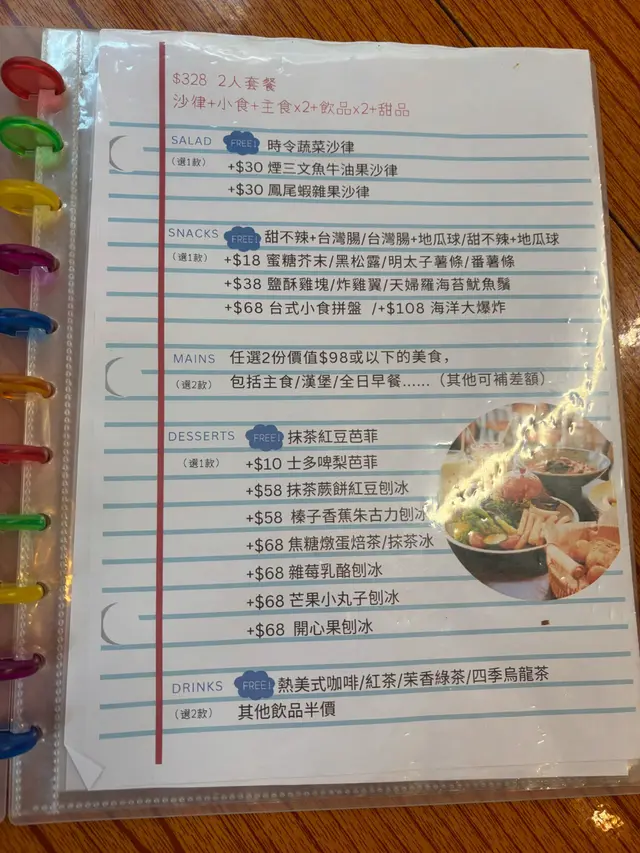 $328 2人套餐
沙律+小食+主食x2+飲品x2+甜品
SALAD FREE! 時令蔬菜沙律
(選1款) +$30 煙三文魚牛油果沙律
+$30 鳳尾蝦雜果沙律
SNACKS FREE! 甜不辣+台灣腸/台灣腸+地瓜球/甜不辣+地瓜球
(選1款) +$18 蜜糖芥末/黑松露/明太子薯條/番薯條
+$38 鹽酥雞塊/炸雞翼/天婦羅海苔魷魚鬚
+$68 台式小食拼盤 /+$108 海洋大爆炸
MAINS 任選2份價值$98或以下的美食，
(選2款) 包括主食/漢堡/全日早餐......（其他可補差額）
DESSERTS FREE! 抹茶紅豆芭菲
(選1款) +$10 士多啤梨芭菲
+$58 抹茶蕨餅紅豆刨冰
+$58 榛子香蕉朱古力刨冰
+$68 焦糖燉蛋焙茶/抹茶冰
+$68 雜莓乳酪刨冰
+$68 芒果小丸子刨冰
+$68 開心果刨冰
DRINKS FREE! 熱美式咖啡/紅茶/茉香綠茶/四季烏龍茶
(選2款) 其他飲品半價